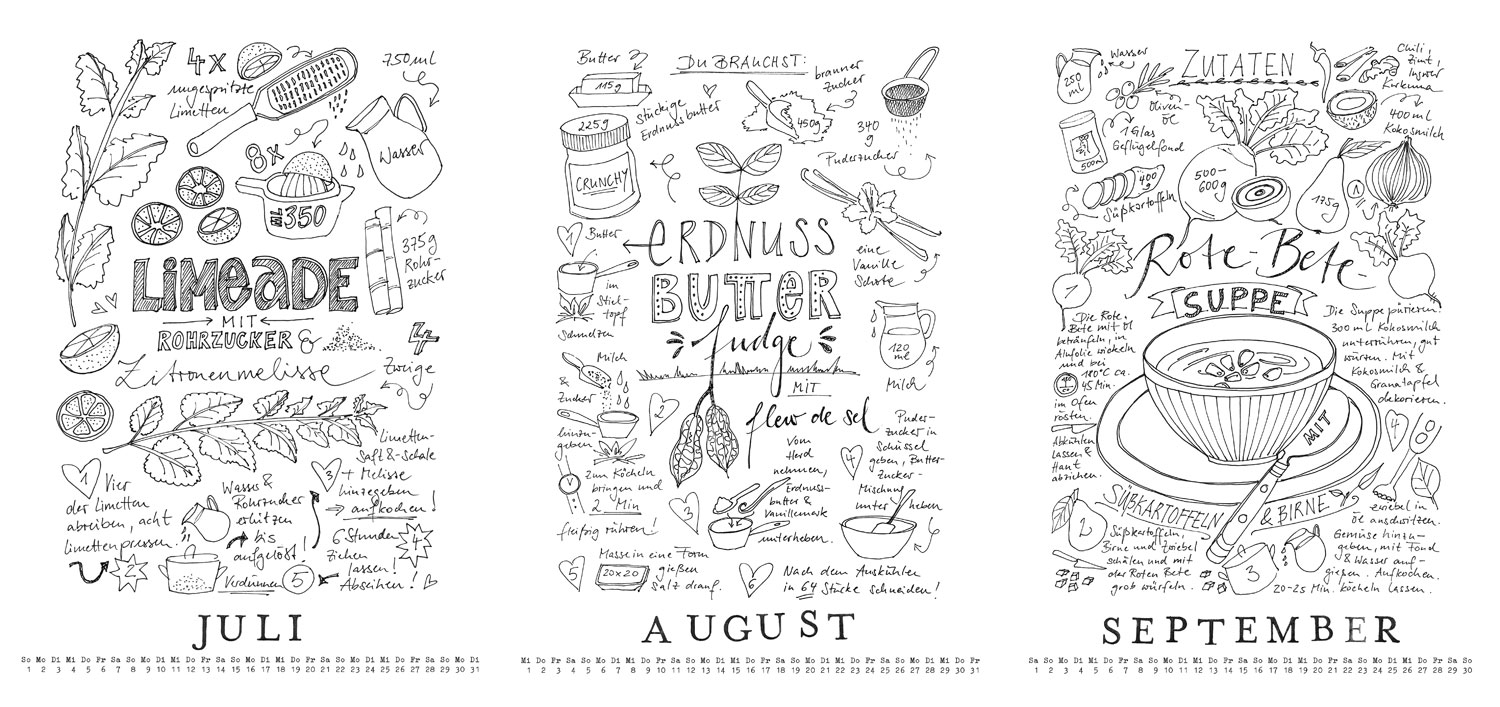 4x
ungespritzte
Limetten
750ml
Wasser
8x
ML 350
375g
Rohr-
zucker
LiMeaDE
MIT
ROHRZUCKER &
Zitronenmelisse
4
Zweige
1 Vier
der limetten
abreiben, acht
limetten pressen.
2
Wasser &
Rohrzucker
erhitzen
bis
aufgelöst!
Limetten-
Saft & -Schale
3 + Melisse
hinzugeben
aufkochen!
4
6 Stunden
ziehen
lassen!
Abseihen!
Verdünnen 5
JULI
So Mo Di Mi Do Fr Sa So Mo Di Mi Do Fr Sa So Mo Di Mi Do Fr Sa So Mo Di Mi Do Fr Sa So Mo Di
1 2 3 4 5 6 7 8 9 10 11 12 13 14 15 16 17 18 19 20 21 22 23 24 25 26 27 28 29 30 31
Butter
115g
DU BRAUCHST:
brauner
Zucker
225g
CRUNCHY
Stückige
Erdnussbutter
450g
340
g
Puderzucker
eine
Vanille
Schote
120
ml
Milch
eRDNUSS
BUTTeR
fudge
MIT
flew de sel
1 Butter
im
Stiel-
topf
Schmelzen
Milch
&
Zucker
hinzu-
geben
2
Zum Köcheln
bringen und
2 Min
fleißig rühren!
3
Vom
Herd
nehmen,
Erdnuss-
butter &
Vanillemark
unterheben.
4
Puder-
zucker in
Schüssel
geben, Butter-
Zucker-
Mischung
unter heben
5
Masse in eine Form
gießen
Salz drauf.
20x20
6
Nach dem Auskühlen
in 64 Stücke schneiden!
AUGUST
Mi Do Fr Sa So Mo Di Mi Do Fr Sa So Mo Di Mi Do Fr Sa So Mo Di Mi Do Fr Sa So Mo Di Mi Do Fr
1 2 3 4 5 6 7 8 9 10 11 12 13 14 15 16 17 18 19 20 21 22 23 24 25 26 27 28 29 30 31
250
ml
Wasser
ZUTATEN
Chili,
Zimt,
Ingwer
Kurkuma
Oliven-
öl
400 ml
Kokosmilch
1 Glas
Geflügelfond
500ml
400
g
Süßkartoffeln
500-
600g
175g
1
Rote-Bete-
SUPPE
MIT
SÜßKARTOFFELN
& BIRNE
1
Die Rote
Bete mit öl
beträufeln, in
Alufolie wickeln
und bei
180°C ca.
45 Min.
im Ofen
rösten.
Abkühlen
lassen &
Haut
abziehen.
2
Süßkartoffeln,
Birne und Zwiebel
schälen und mit
der Roten Bete
grob würfeln.
3
Zwiebel in
öl anschwitzen.
Gemüse hinzu-
geben, mit Fond
& Wasser auf-
gießen. Aufkochen.
20-25 Min. köcheln lassen.
4
Die Suppe pürieren.
300 ml Kokosmilch
unterrühren, gut
würzen. Mit
Kokosmilch &
Granatapfel
dekorieren.
SEPTEMBER
Sa So Mo Di Mi Do Fr Sa So Mo Di Mi Do Fr Sa So Mo Di Mi Do Fr Sa So Mo Di Mi Do Fr Sa So
1 2 3 4 5 6 7 8 9 10 11 12 13 14 15 16 17 18 19 20 21 22 23 24 25 26 27 28 29 30